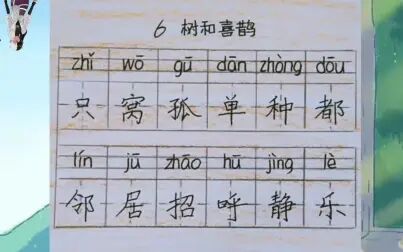 6 树和喜鹊
zhǐ wō gū dān zhòng dōu
只 窝 孤 单 种 都
lín jū zhāo hū jìng lè
邻 居 招 呼 静 乐